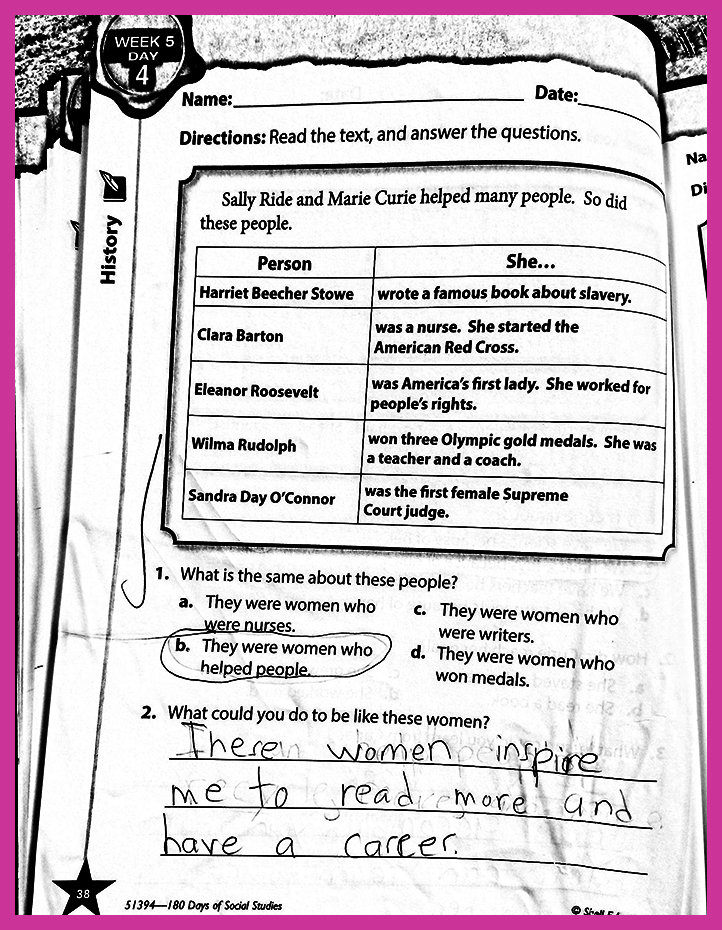 WEEK 5
DAY
4
Name: Date:
Directions: Read the text, and answer the questions.
History
Sally Ride and Marie Curie helped many people. So did
these people.
Person She...
Harriet Beecher Stowe wrote a famous book about slavery.
Clara Barton was a nurse. She started the
American Red Cross.
Eleanor Roosevelt was America's first lady. She worked for
people's rights.
Wilma Rudolph won three Olympic gold medals. She was
a teacher and a coach.
Sandra Day O'Connor was the first female Supreme
Court judge.
1. What is the same about these people?
a. They were women who
were nurses.
b. They were women who
helped people.
c. They were women who
were writers.
d. They were women who
won medals.
2. What could you do to be like these women?
women inspire
me to read more and
have a career.
38
51394—180 Days of Social Studies
©
Na
Di